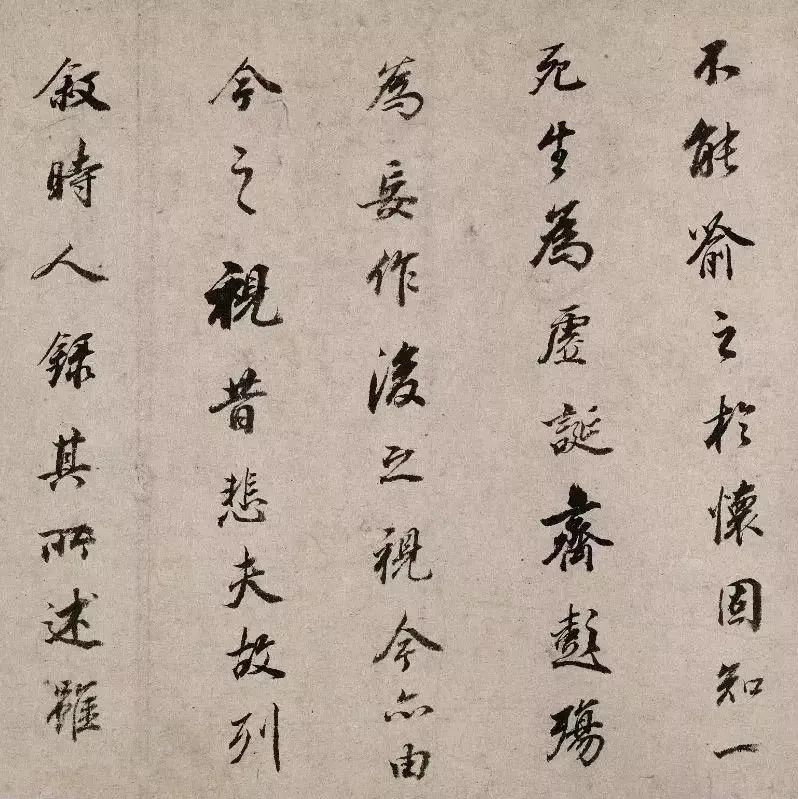 不能喻之於懷固知一
死生為虛誕齊彭殤
為妄作後之視今亦由
今之視昔悲夫故列
敘時人錄其所述雖